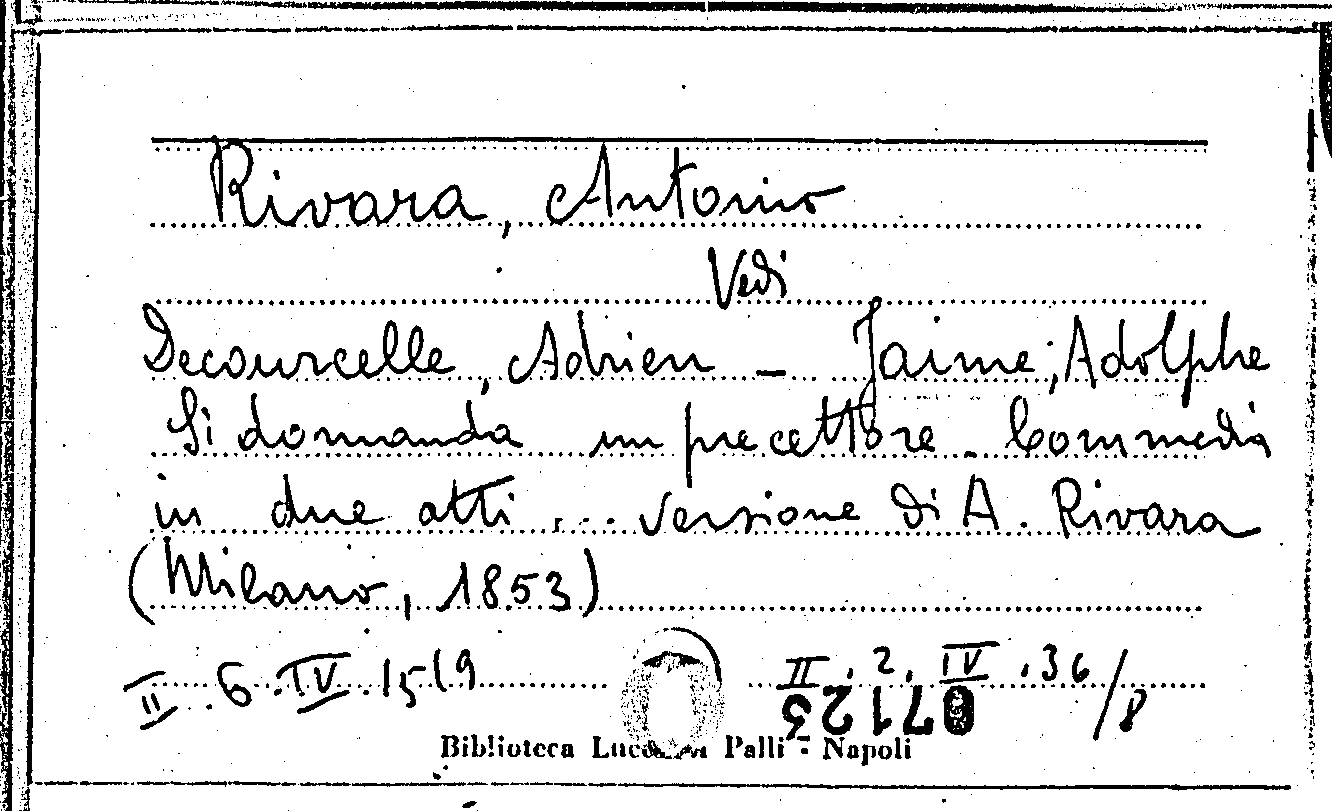 Rivara, Antonio
Vedi
Decourcelle, Adrien - Jaime, Adolphe
Si domanda un precettore. Commedia
in due atti... versione di A. Rivara
(Milano, 1853)
II. 6. IV. 15 19
II. 2. IV. 36/8
07123
Biblioteca Lucchesi Palli - Napoli